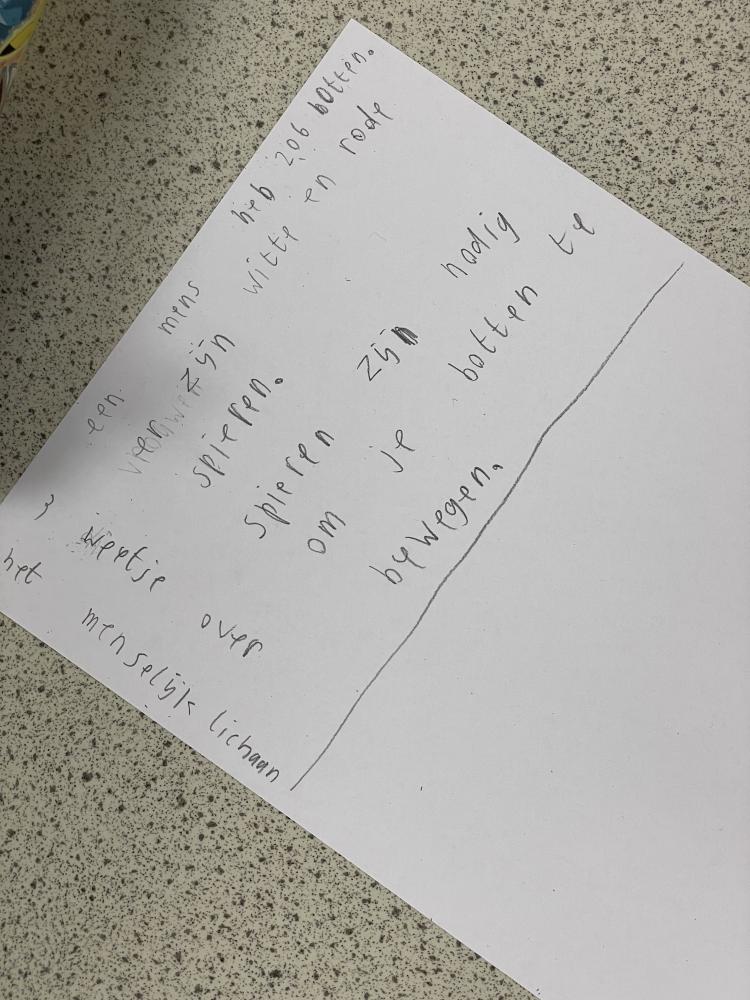 3 weetje over
het menselijk lichaan
een mens heb 206 botten.
er zijn witte en rode
spieren.
spieren zijn nodig
om je botten te
bewegen.